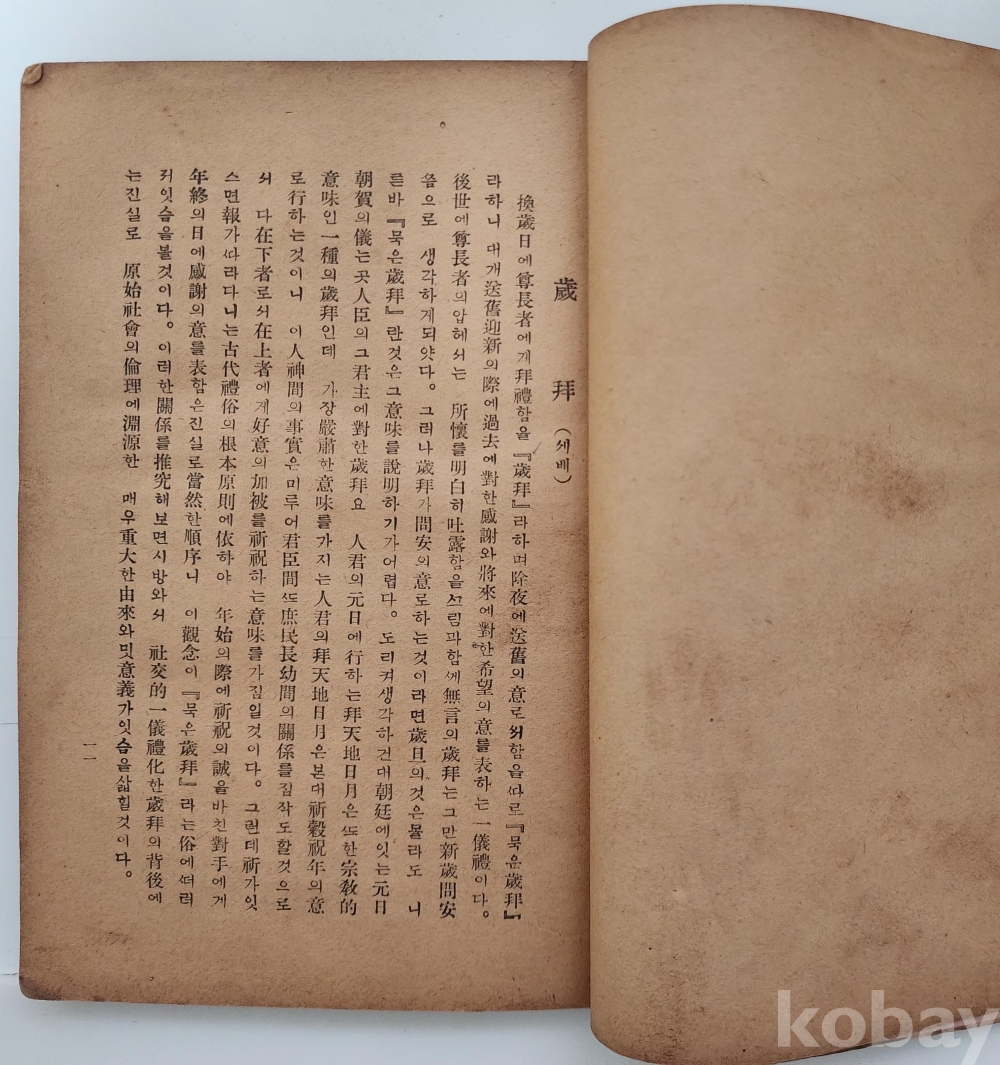 歲拜(세배)
換歲日에尊長者에게拜禮함을『歲拜』라하며除夜에送舊의意로ᄶᅥ함을ᄯᅡ로『묵은歲拜』
라하니 대개送舊迎新의際에過去에對한感謝와將來에對한希望의意를表하는一儀禮이다。
後世에尊長者의압헤서는 所懷를明白히吐露함을ᄭᅥ림과함ᄭᅦ無言의歲拜는그만新歲問安
쯤으로 생각하게되얏다。그러나歲拜가問安의意로하는것이라면歲旦의것은몰라도 니
른바『묵은歲拜』란것은그意味를說明하기가어렵다。도리켜생각하건대朝廷에잇는元日
朝賀의儀는곳人臣의그君主에對한歲拜요 人君의元日에行하는拜天地日月은ᄯᅩ한宗敎的
意味인一種의歲拜인데 가장嚴肅한意味를가지는人君의拜天地日月은본대祈穀祝年의意
로行하는것이니 이人神間의事實은미루어君臣間ᄯᅩ庶民長幼間의關係를짐작도할것으로
ᄶᅥ 다在下者로ᄶᅥ在上者에게好意의加被를祈祝하는意味를가짐일것이다。그런데祈가잇
스면報가ᄯᅡ라다니는古代禮俗의根本原則에依하야 年始의際에祈祝의誠을바친對手에게
年終의日에感謝의意를表함은진실로當然한順序니 이觀念이『묵은歲拜』라는俗에ᄯᅥ러
저잇슴을볼것이다。이러한關係를推究해보면시방와ᄶᅥ 社交的一儀禮化한歲拜의背後에
는진실로 原始社會의倫理에淵源한 매우重大한由來와밋意義가잇슴을삷힐것이다。
一一
kobay